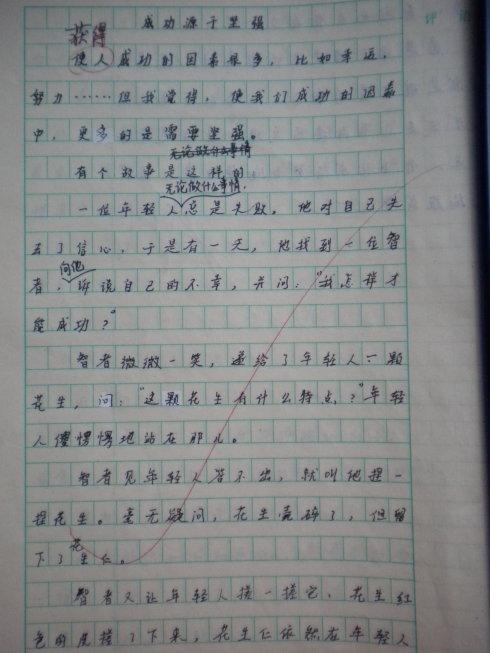 成功源于坚强
获得
使人成功的因素很多，比如幸运，
努力……但我觉得，使我们成功的因素
中，更多的是需要坚强。
无论做什么事情
有个故事是这样的
无论做什么事情，
一位年轻人总是失败，他对自己失
去了信心，于是有一天，他找到一位智
向他
者，诉说自己的不幸，并问："我怎样才
能成功？"
智者微微一笑，递给了年轻人一颗
花生，问："这颗花生有什么特点？"年轻
人傻愣愣地站在那儿。
智者见年轻人答不出，就叫他捏一
捏花生。毫无疑问，花生壳碎了，但留
花
下了生仁。
智者又让年轻人搓一搓它，花生红
色的皮搓了下来，花生仁依然在年轻人